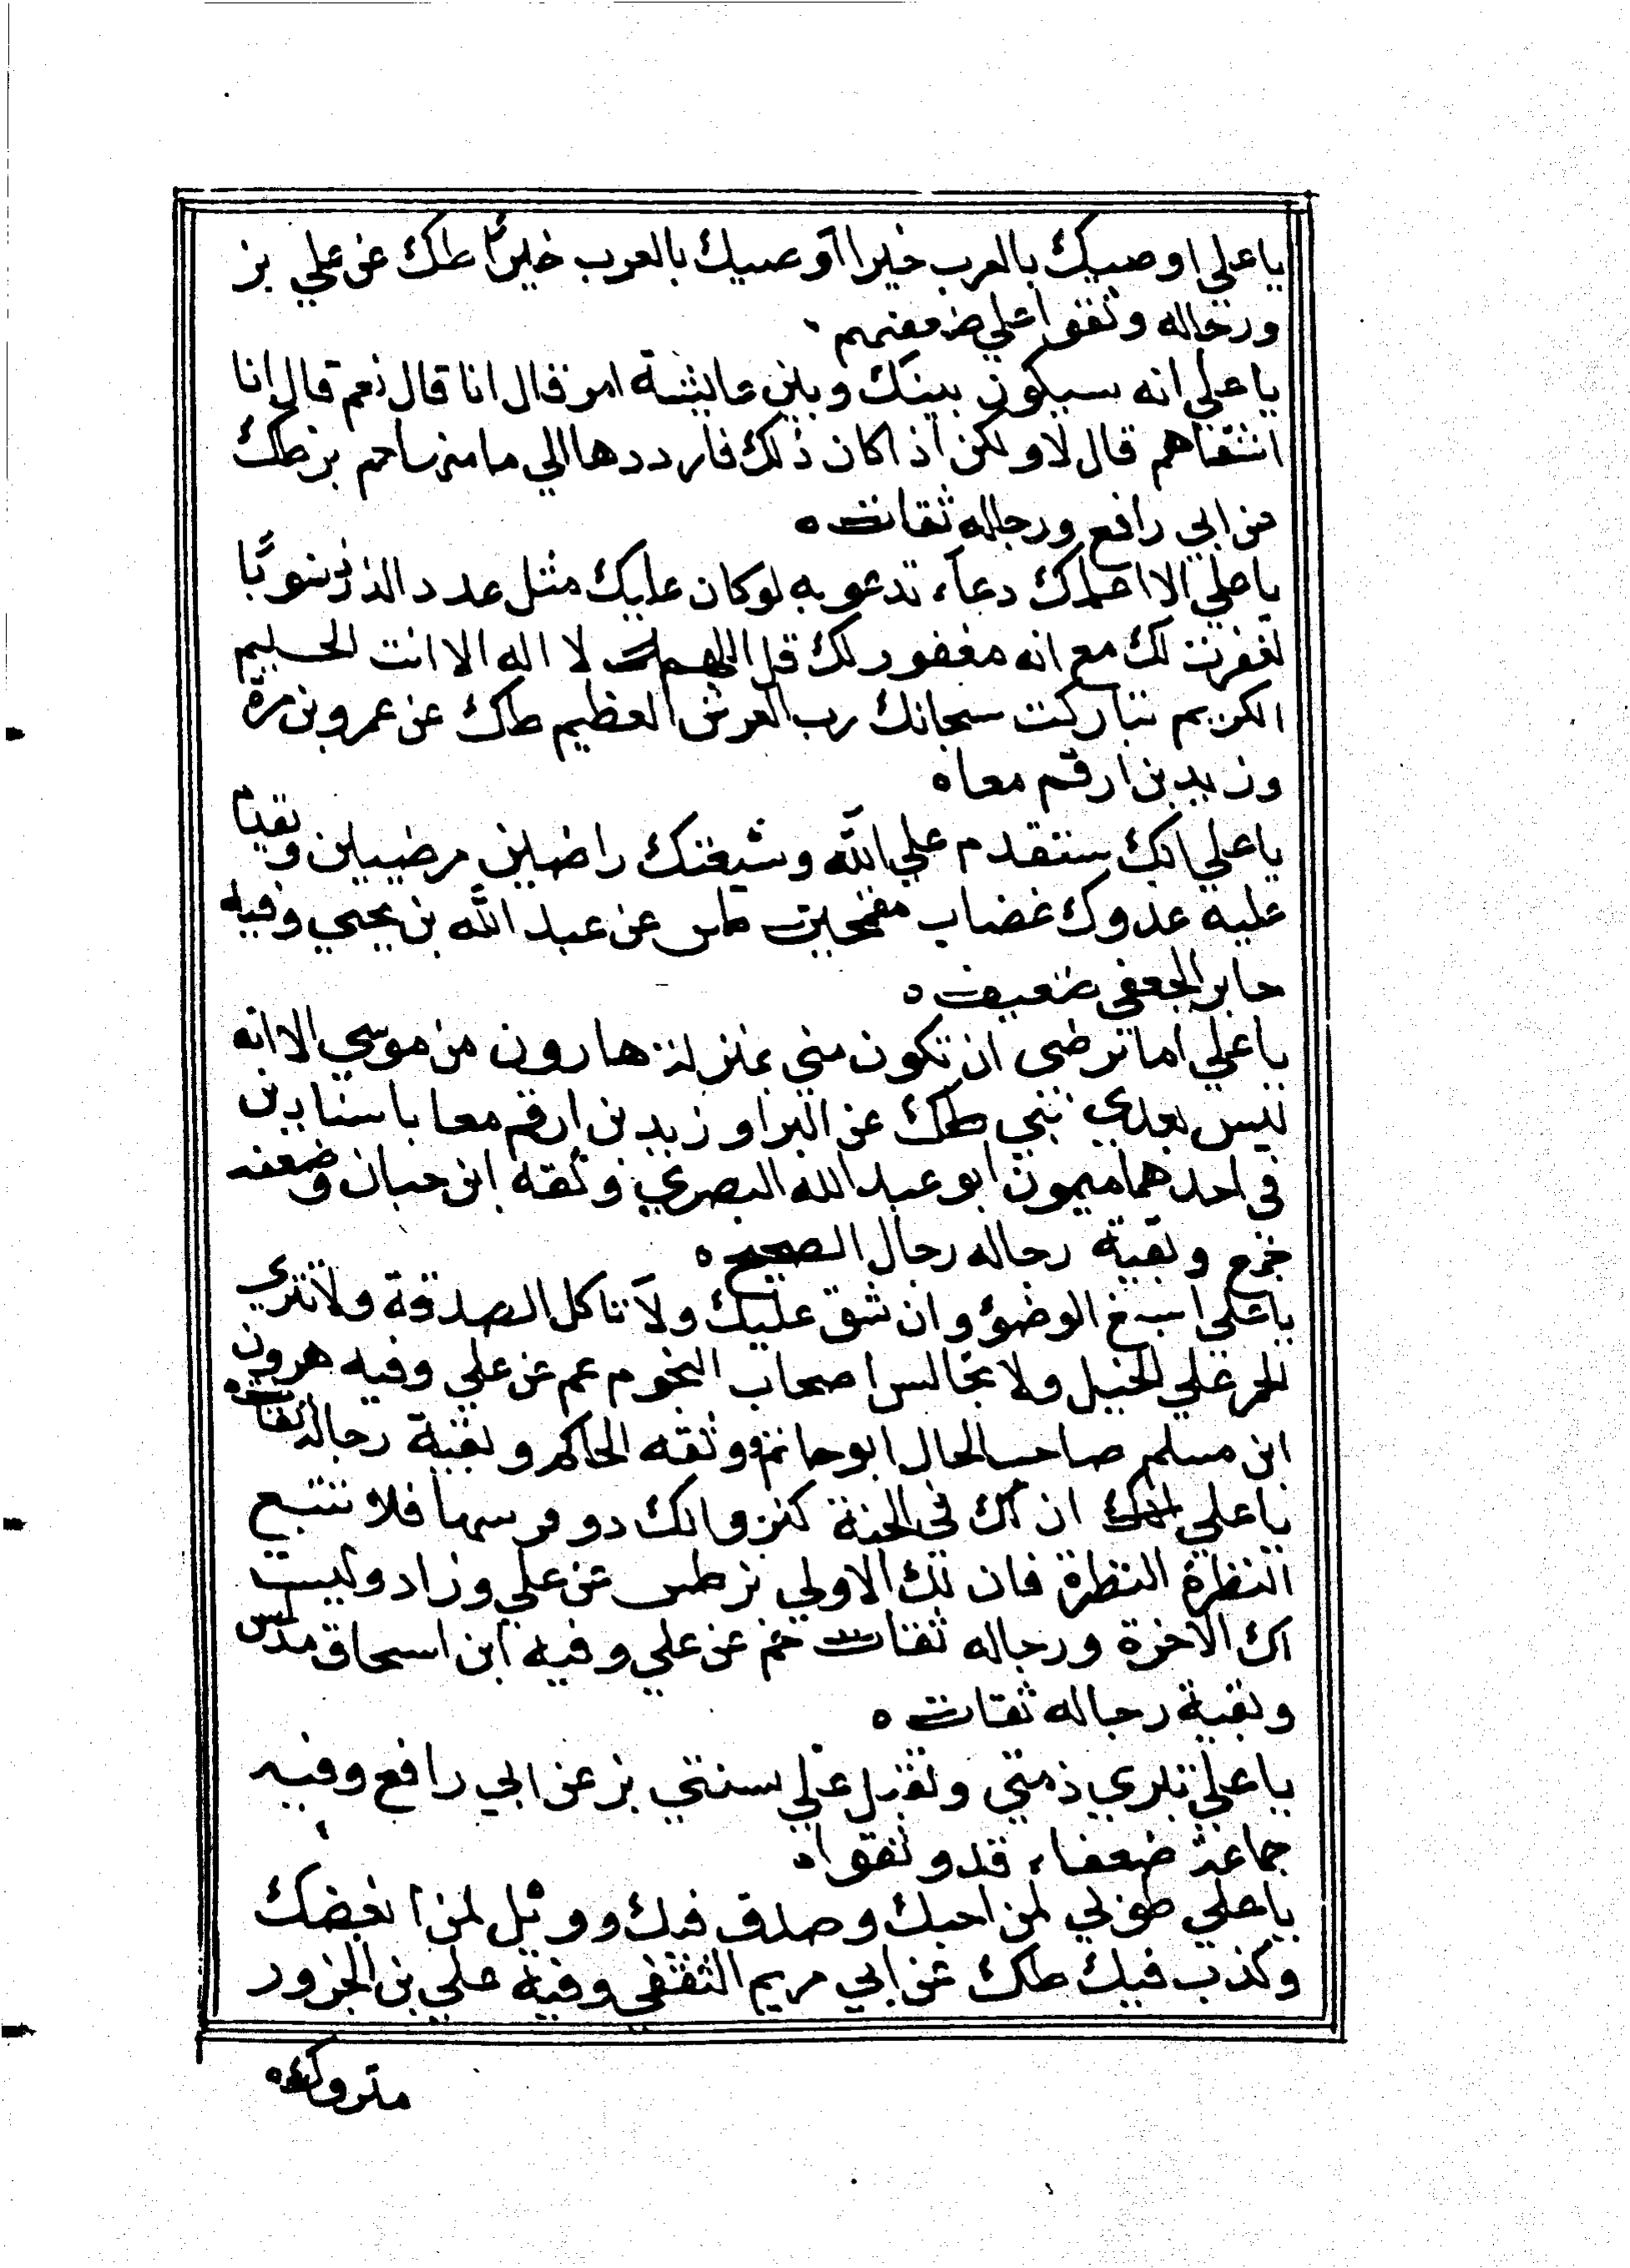 يا علي اوصيك بالعرب خيرا اوصيك بالعرب خيرًا طك عن علي بز
ورجاله وثقوا علي ضعفهم
يا علي انه سيكون بينك وبين عايشة امر قال انا قال نعم قال انا
اشقاهم قال لا ولكن اذا كان ذلك فارددها الي مامنها حم بز طك
عن ابي رافع ورجاله ثقات ه
يا علي الا اعلمك دعاء تدعو به لو كان عليك مثل عدد الذر ذنوبًا
لغفرت لك مع انه مغفور لك قل اللهم لا اله الا انت الحليم
الكريم تباركت سبحانك رب العرش العظيم طك عن عمرو بن مرة
وزيد بن ارقم معا ه
يا علي انك ستقدم علي الله وشيعتك راضين مرضيين ويقدم
عليه عدوك غضاب مقمحين طس عن عبد الله بن يحيي وفيه
جابر الجعفي ضعيف ه
يا علي اما ترضي ان تكون مني بمنزلة هارون من موسي الا انه
ليس بعدي نبي طك عن البرا وزيد بن ارقم معا باسنادين
في احدهما ميمون ابو عبد الله البصري وثقه ابن حبان وضعفه
جمع وبقية رجاله رجال الصحيح ه
يا علي اسبغ الوضوء وان شق عليك ولا تاكل الصدقة ولا تنزي
الحمر علي الخيل ولا تجالس اصحاب النجوم عم عن علي وفيه هرون
ابن مسلم صاحب الحال ابو حاتم ووثقه الحاكم وبقية رجاله ثقات ه
يا علي ان لك في الجنة كنز وانك ذو قرنيها فلا تتبع
النظرة النظرة فان لك الاولي بز طس عن علي وزاد وليست
لك الاخرة ورجاله ثقات حم عن علي وفيه ابن اسحاق مدلس
وبقية رجاله ثقات ه
يا علي تبري ذمتي وتقتل علي سنتي بز عن ابي رافع وفيه
جماعة ضعفاء قد وثقوا ه
يا علي طوبي لمن احبك وصدق فيك وويل لمن ابغضك
وكذب فيك طك عن ابي مريم الثقفي وفيه علي بن الحزور
متروك ه